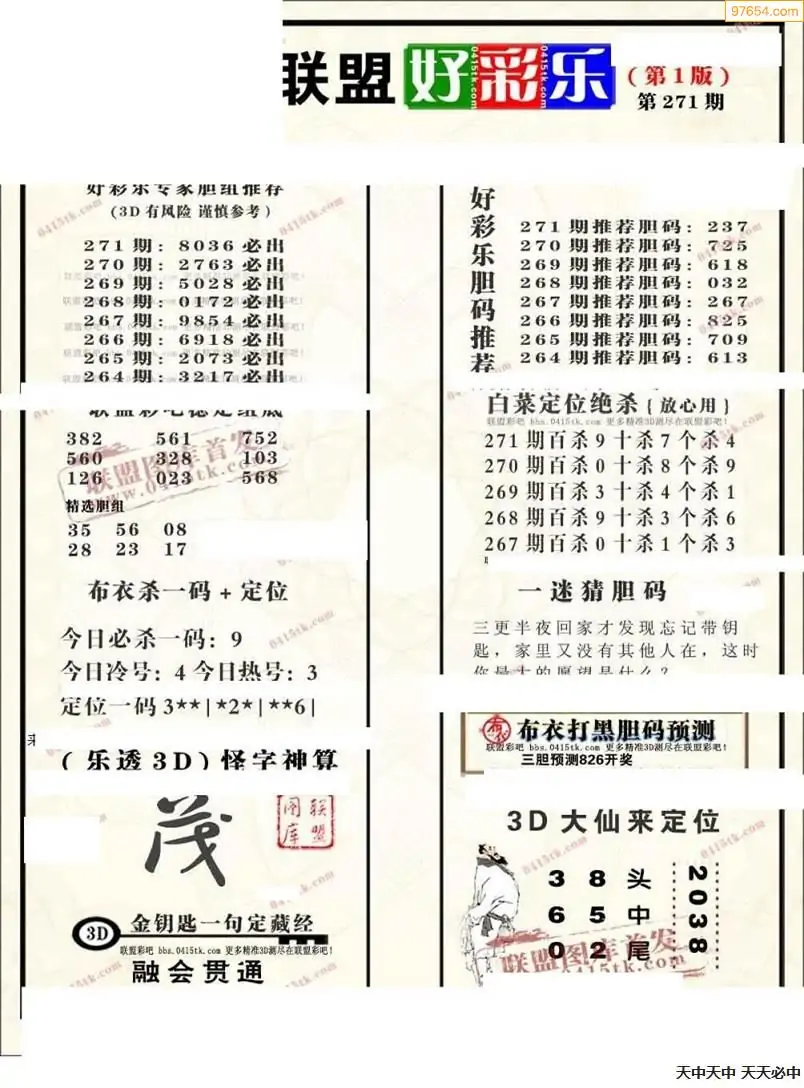 97654.com
联盟 好彩乐
(第1版)
第271期
好彩乐专家胆组推荐
(3D有风险 谨慎参考)
271期: 8036必出
270期: 2763必出
269期: 5028必出
268期: 0172必出
267期: 9854必出
266期: 6918必出
265期: 2073必出
264期: 3217必出
382 561 752
560 328 103
126 023 568
联盟图库首发
www.0415tk.com
精选胆组
35 56 08
28 23 17
布衣杀一码+定位
今日必杀一码: 9
今日冷号: 4 今日热号: 3
定位一码3**|*2*|**6|
(乐透3D)怪字神算
茂
联盟图库
3D 金钥匙一句定藏经
联盟彩吧 bbs.0415tk.com 更多精准3D测尽在联盟彩吧!
融会贯通
好彩乐胆码推荐
271期推荐胆码: 237
270期推荐胆码: 725
269期推荐胆码: 618
268期推荐胆码: 032
267期推荐胆码: 267
266期推荐胆码: 825
265期推荐胆码: 709
264期推荐胆码: 613
白菜定位绝杀{放心用}
联盟彩吧 bbs.0415tk.com 更多精准3D测尽在联盟彩吧!
271期百杀9十杀7个杀4
270期百杀0十杀8个杀9
269期百杀3十杀4个杀1
268期百杀9十杀3个杀6
267期百杀0十杀1个杀3
一迷猜胆码
三更半夜回家才发现忘记带钥
匙，家里又没有其他人在，这时
你最大的愿望是什么?
布衣 布衣打黑胆码预测
联盟彩吧 bbs.0415tk.com 更多精准3D测尽在联盟彩吧!
三胆预测826开奖
3D大仙来定位
3 8 头
6 5 中
0 2 尾
2038
联盟图库首发
0415tk.com
天中天中 天天必中